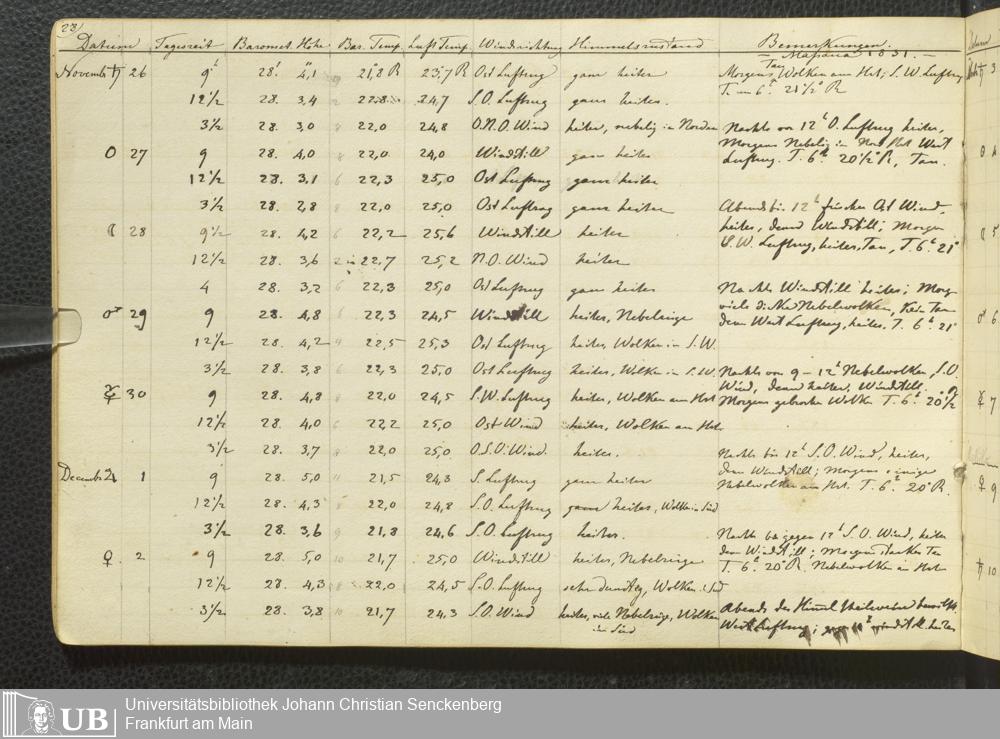 28
Datum Tageszeit Baromet. Höhe Bar. Temp. Luft Temp. Windrichtung Himmelszustand Bemerkungen.
— Massaua 1831. —
Novemb ♄ 26 9h 28' 4,1''' 21,8 R 23,7 R Ost Luftzug ganz heiter Morgens Wolken am Hrt; S.W. Luftzug
Tau
T. um 6h 21½° R
12½ 28. 3,4 22,8 24,7 S.O. Luftzug ganz heiter.
3½ 28. 3,0 22,0 24,8 O.N.O. Wind heiter, neblig in Norden Nachts von 12h O. Luftzug heiter,
☉ 27 9 28. 4,0 22,0 24,0 Windstill ganz heiter Morgens Neblig im Hrt West
Luftzug. T. 6h 20½°R, Tau.
12½ 28. 3,1 22,3 25,0 Ost Luftzug ganz heiter
3½ 28. 2,8 22,0 25,0 Ost Luftzug ganz heiter Abends bis 12h frischer Ost Wind,
☾ 28 9½ 28. 4,2 22,2 25,6 Windstill heiter heiter, dann Windstill; Morgen
S.W. Luftzug, heiter, Tau, T. 6h 21°
12½ 28. 3,6 22,7 25,2 N.O. Wind heiter
4 28. 3,2 22,3 25,0 Ost Luftzug ganz heiter Nachts Windstill heiter; Morg
♂ 29 9 28. 4,8 22,3 24,5 Windstill heiter, Nebelreige viele dicke Nebelwolken, Kein Tau
dann West Luftzug, heiter. T. 6h 21°
12½ 28. 4,2 22,5 25,3 Ost Luftzug heiter, Wolken in S.W.
3½ 28. 3,8 22,3 25,0 Ost Luftzug heiter, Wolken in S.W. Nachts von 9–12h Nebelwolken, S.O.
☿ 30 9 28. 4,8 22,0 24,5 S.W. Luftzug heiter, Wolken am Hrt Wind, dann heiter, Windstill.
Morgens gebrochn Wolken T. 6h 20½° R
12½ 28. 4,0 22,2 25,0 Ost Wind heiter, Wolken am Hrt
3½ 28. 3,7 22,0 25,0 O.S.O. Wind. heiter. Nachts bis 12h S.O. Wind, heiter,
Decembr ♃ 1 9 28. 5,0 21,5 24,3 S. Luftzug ganz heiter dann Windstill; Morgens einige
Nebelwolken am Hrt. T. 6h 20° R.
12½ 28. 4,3 22,0 24,8 S.O. Luftzug ganz heiter, Wolken in Süd
3½ 28. 3,6 21,8 24,6 S.O. Luftzug heiter. Nachts bis gegen 12h S.O. Wind, heiter
♀ 2 9 28. 5,0 21,7 25,0 Windstill heiter, Nebelreige dann Windstill; Morgens starker Tau
T. 6h 20° R. Nebelwolken am Hrt
12½ 28. 4,3 22,0 24,5 S.O. Luftzug sehr dunstig, Wolken i. Süd
3½ 28. 3,8 21,7 24,3 S.O. Wind heiter, viele Nebelreige, Wolken Abends der Himmel theilweise bewölkt.
in Süd West Luftzug; windstill heiter
Universitätsbibliothek Johann Christian Senckenberg
Frankfurt am Main
UB